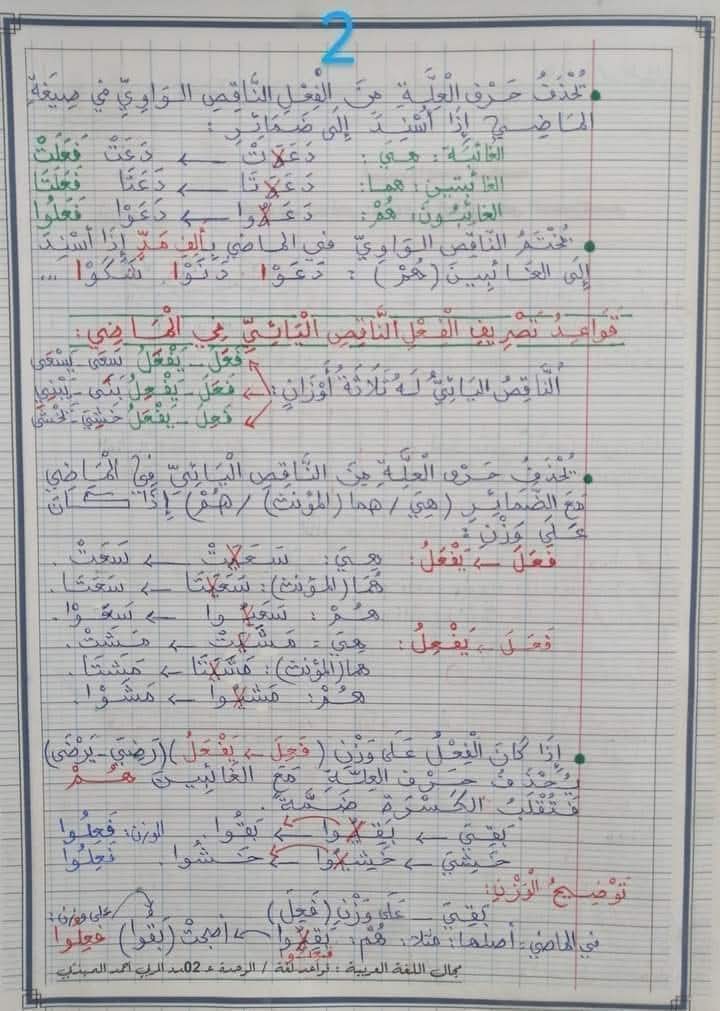 2
تُحْذَفُ حَرْفُ الْعِلَّةِ مِنَ الْفِعْلِ النَّاقِصِ الوَاوِيِّ فِي صِيغَةِ
المَاضِي إِذَا أُسْنِدَ إِلَى ضَمَائِرِ :
الغائِبَة : هِيَ : دَعَوَتْ ← دَعَتْ فَعَلَتْ
الغائبتين : هما : دَعَوَتَا ← دَعَتَا فَعَلَتَا
الغائِبُونَ : هُمْ : دَعَوُوا ← دَعَوْا فَعَلُوا
يُخْتَمُ النَّاقِصُ الوَاوِيُّ في الماضي بِأَلِفِ مَدٍّ إِذَا أُسْنِدَ
إِلَى الغَائِبِينَ (هُمْ) : دَعَوْا دَنَوْا شَكَوْا ...
قَوَاعِدُ تَصْرِيفِ الْفِعْلِ النَّاقِصِ الْيَائِيِّ فِي الْمَاضِي :
فَعَلَ - يَفْعَلُ سَعَى - يَسْعَى
النَّاقِصُ اليَائِيُّ لَهُ ثَلَاثَةُ أَوْزَانٍ : فَعَلَ - يَفْعِلُ بَنَى - يَبْنِي
فَعِلَ - يَفْعَلُ خَشِيَ - يَخْشَى
يُحْذَفُ حَرْفُ الْعِلَّةِ مِنَ النَّاقِصِ الْيَائِيِّ فِي الْمَاضِي
مَعَ الضَّمَائِرِ (هِيَ / هما (المؤنث) / هُمْ) إِذَا كَانَ
عَلَى وَزْنِ :
فَعَلَ ← يَفْعَلُ : هِيَ : سَعَيَتْ ← سَعَتْ .
هُمَا (المؤنث) : سَعَيَتَا ← سَعَتَا .
هُمْ : سَعَيُوا ← سَعَوْا .
فَعَلَ ← يَفْعِلُ : هِيَ : مَشَيَتْ ← مَشَتْ .
هما (المؤنث) : مَشَيَتَا ← مَشَتَا .
هُمْ : مَشَيُوا ← مَشَوْا .
إِذَا كَانَ الْفِعْلُ عَلَى وَزْنِ (فَعِلَ ← يَفْعَلُ) (رَضِيَ - يَرْضَى)
يُحْذَفُ حَرْفُ العِلَّةِ مَعَ الغَائِبِينَ هُمْ
فَتُقْلَبُ الكَسْرَةُ ضَمَّةً .
بَقِيَ ← بَقِيُوا ← بَقُوا . الوزن : فَعِلُوا
خَشِيَ ← خَشِيُوا ← خَشُوا . فَعِلُوا
تَوْضِيحُ الْوَزْنِ :
بَقِيَ - عَلَى وَزْنِ (فَعِلَ) على وزن :
في الماضي = أصلها : مثلا : هُمْ : بَقِيُوا ← أصبحتْ (بَقُوا) فَعِلُوا
فَعِلُوا
مجال اللغة العربية : قواعد لغة / الوحدة 02